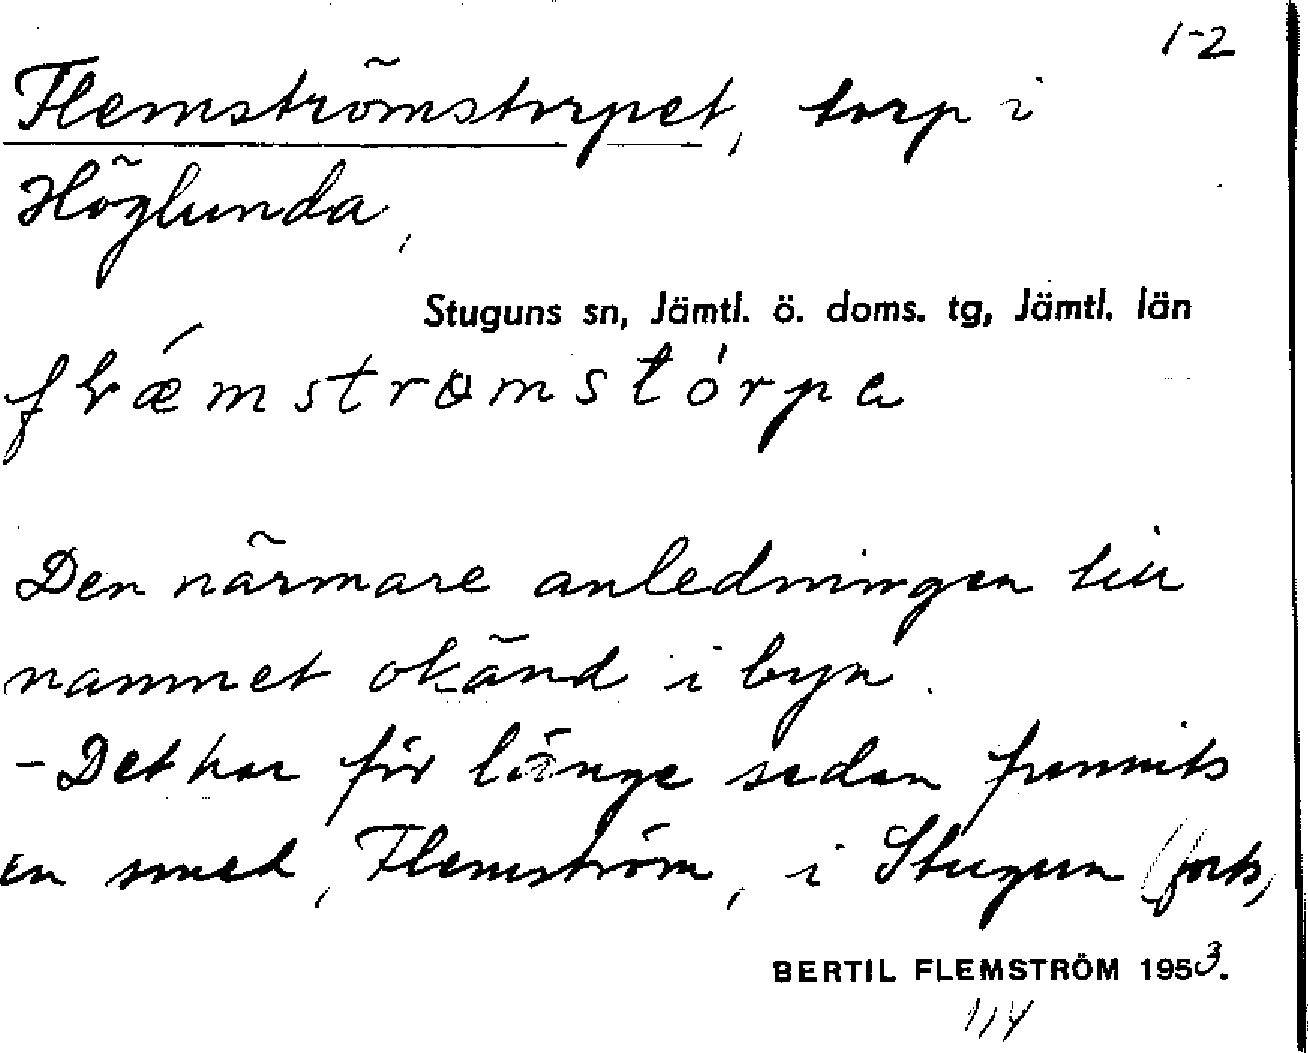 1-2
Flemströmstorpet, torp i
Höglunda,
Stuguns sn, Jämtl. ö. doms. tg, Jämtl. län
Den närmare anledningen till
namnet okänd i byn.
- Det har för länge sedan funnits
en smed, Flemström, i Stugun (forts)
BERTIL FLEMSTRÖM 1953.